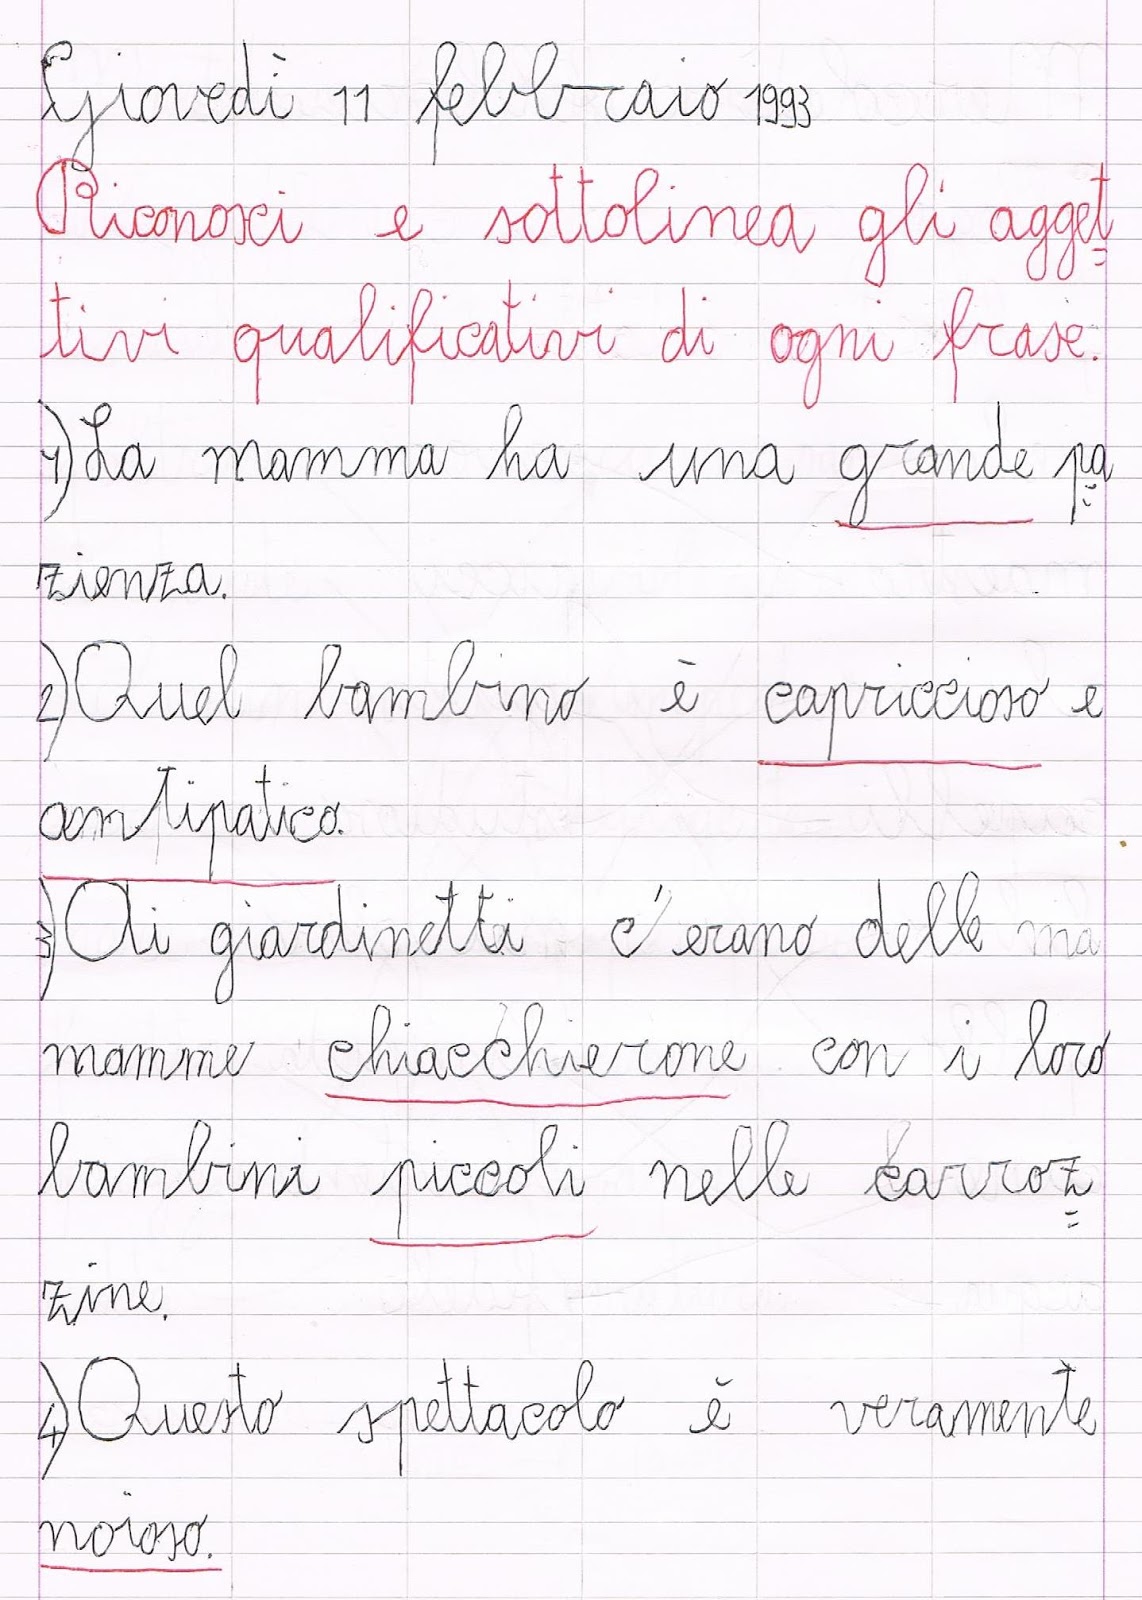 Giovedì 11 febbraio 1993
Riconosci e sottolinea gli agget=
tivi qualificativi di ogni frase.
1) La mamma ha una grande pa=
zienza.
2) Quel bambino è capriccioso e
antipatico.
3) Ai giardinetti c'erano delle ma
mamme chiacchierone con i loro
bambini piccoli nelle carroz=
zine.
4) Questo spettacolo è veramente
noioso.